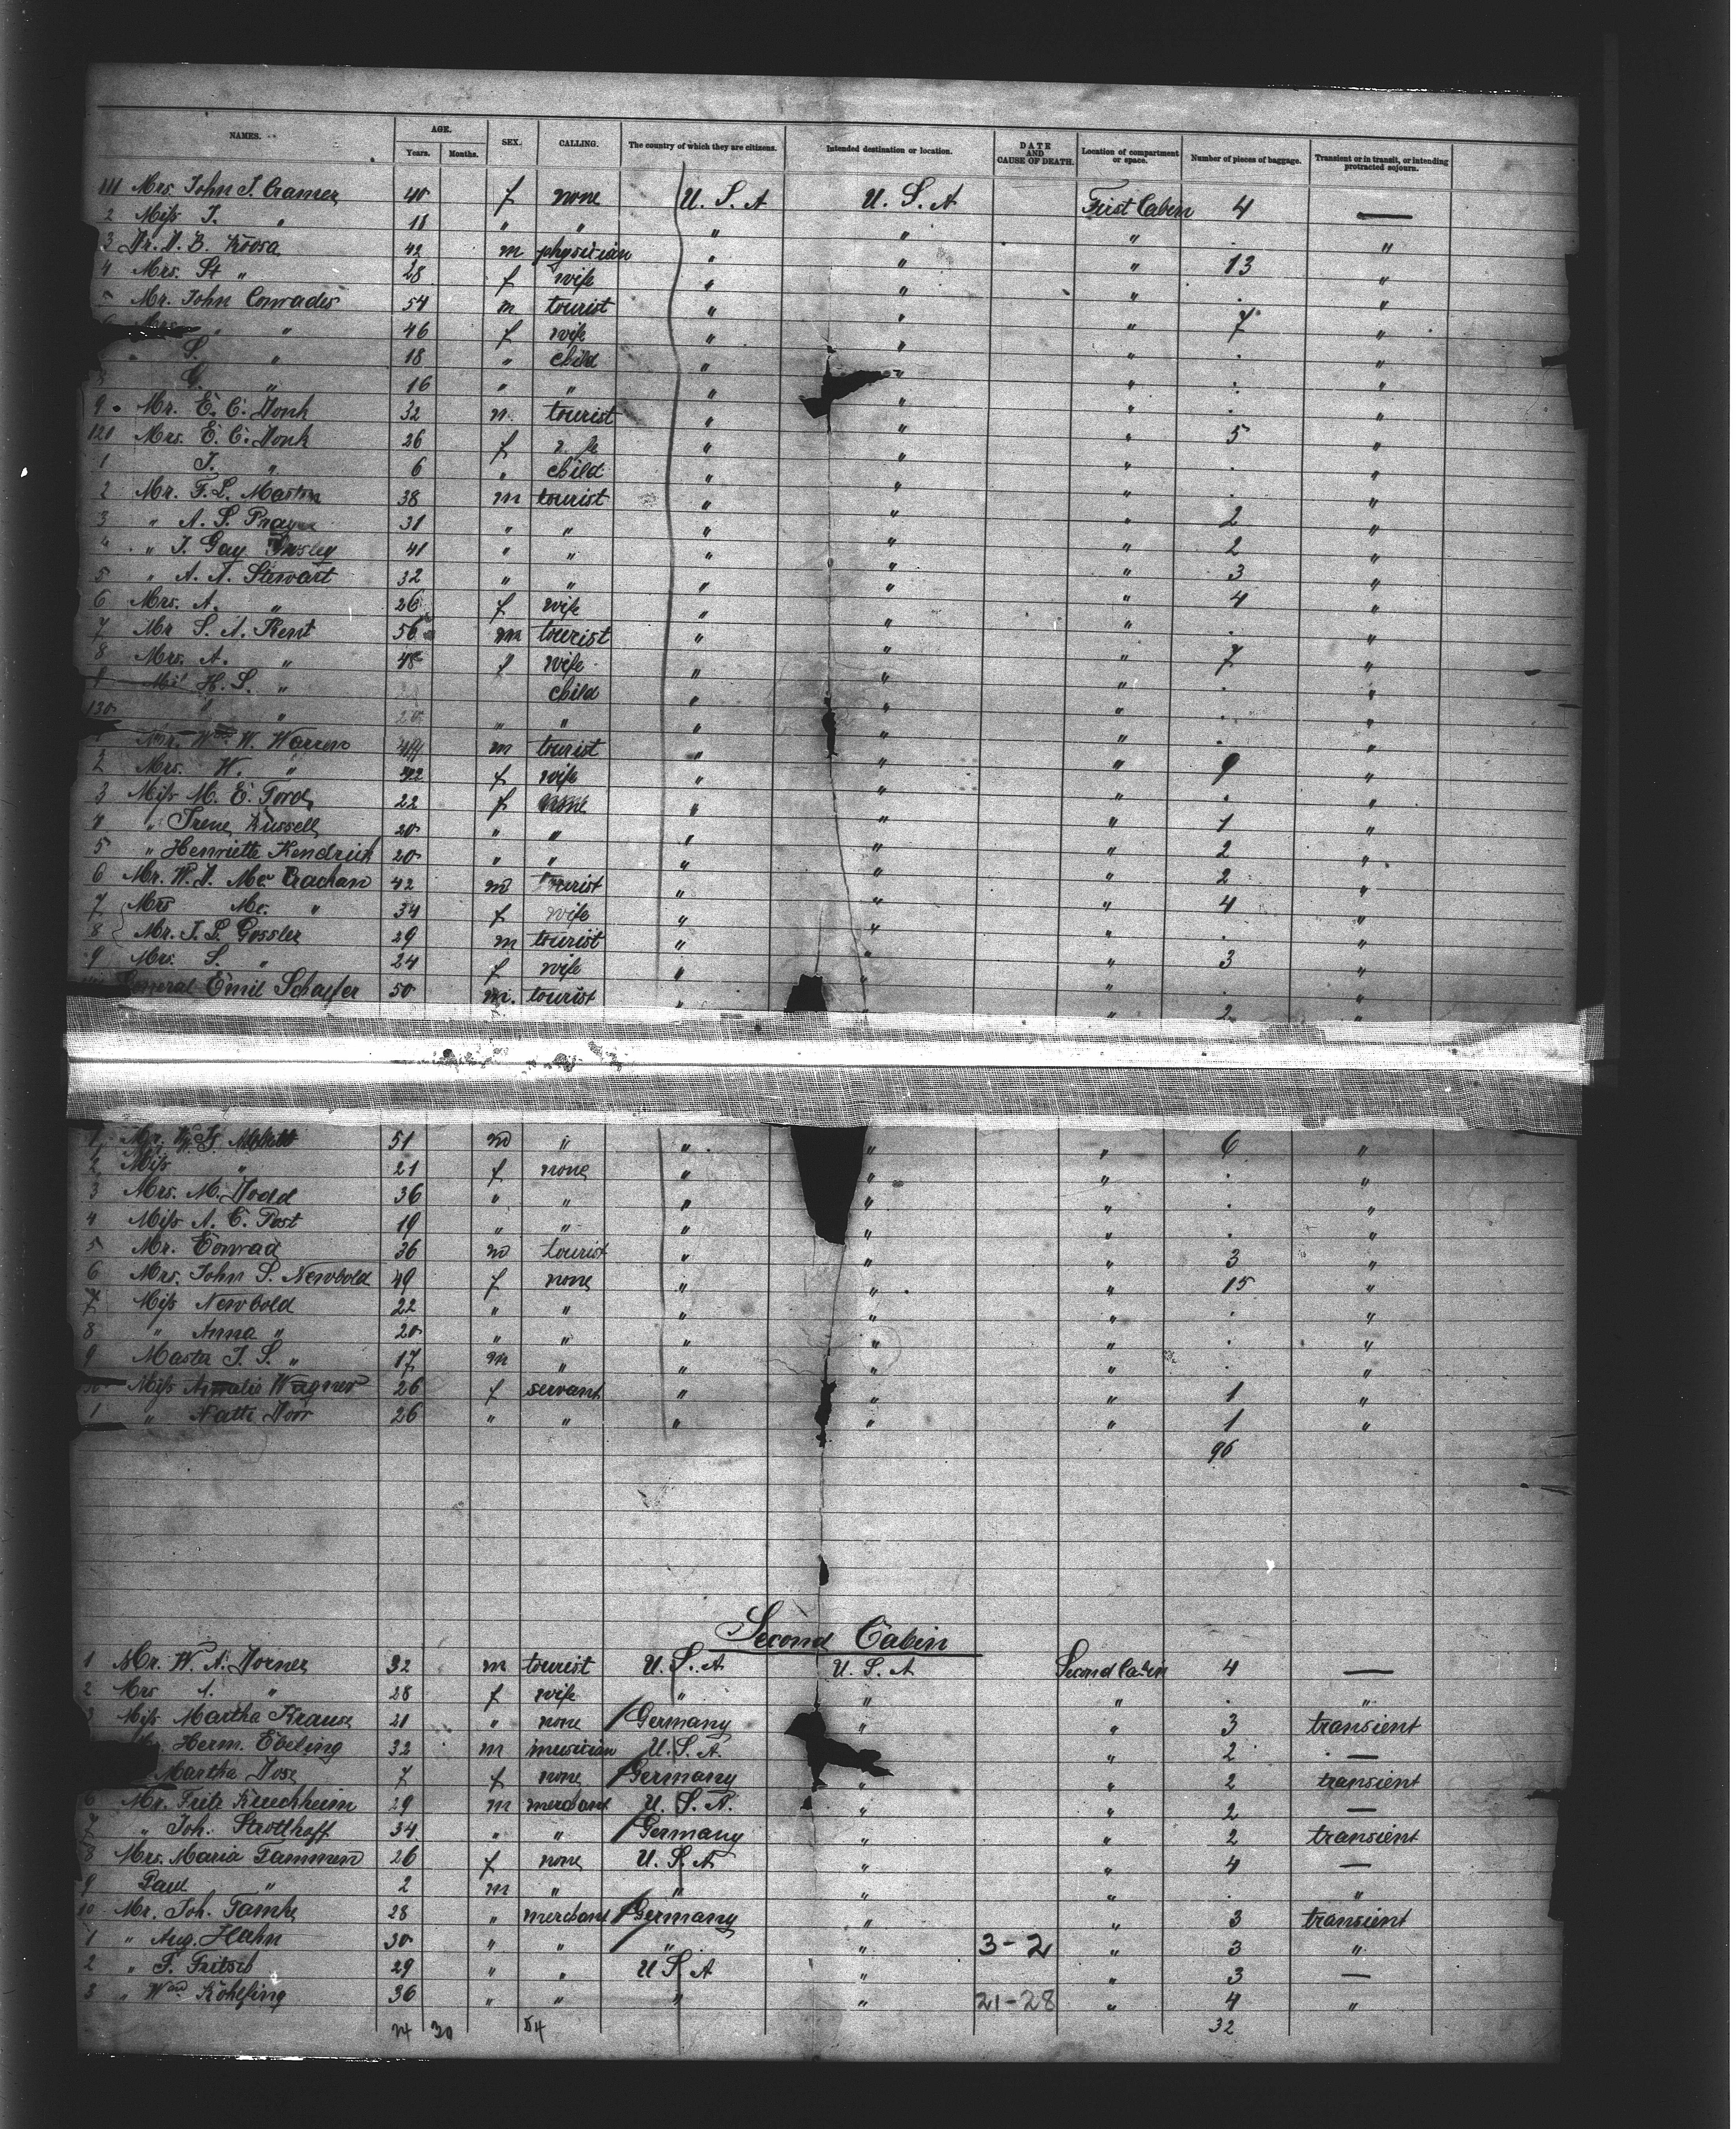 NAMES. AGE. SEX. CALLING. The country of which they are citizens. Intended destination or location. DATE AND CAUSE OF DEATH. Location of compartment or space. Number of pieces of baggage. Transient or in transit, or intending protracted sojourn.
Years. Months.
111 Mrs. John J. Cramer 40 f none U. S. A U. S. A First Cabin 4 —
2 Miss J. " 18 " " " " " . "
3 Dr. D. B. Roosa 42 m physician " " " 13 "
4 Mrs. St " 28 f wife " " " . "
Mr. John Conrades 54 m tourist " " " 7 "
" " 46 f wife " " " . "
S. " 18 " child " " " . "
G. " 16 " " " " " . "
9 Mr. E. C. Donk 32 m tourist " " " 5 "
120 Mrs. E. C. Donk 26 f " " " . "
1 J. " 6 " child " " " . "
2 Mr. F. L. Marton 38 m tourist " " " 2 "
3 " A. S. Pray 31 " " " " " 2 "
4 " J. Gay 41 " " " " " 3 "
5 " A. A. Stewart 32 " " " " " 4 "
6 Mrs. A. " 26 f wife " " " . "
7 Mr S. A. Kent 56 m tourist " " " 7 "
8 Mrs. A. " 48 f wife " " " . "
9 H. S. " child " " " . "
130 " 20 " " " " " . "
Mr. Wm W. Warren 49 m tourist " " " 9 "
2 Mrs. W. " 42 f wife " " " . "
3 Miss M. E. Ford 22 f none " " " 1 "
4 " Irene Russell 20 " " " " " 2 "
5 " Henriette Kendrick 20 " " " " " 2 "
6 Mr. W. D. Mc Crachan 42 m tourist " " " 4 "
7 Mrs Mc. " 34 f wife " " " . "
8 Mr. J. L. Gossler 29 m tourist " " " 3 "
9 Mrs. S. " 24 f wife " " " . "
General Emil Schaffer 50 m. tourist " " " 2 "
1 Mr. 51 m " " " " 6 "
2 Miss " 21 f none " " " . "
3 Mrs. M. Dodd 36 " " " " " . "
4 Miss A. C. Post 19 " " " " " . "
5 Mr. Conrad 36 m tourist " " " 3 "
6 Mrs. John S. Newbold 49 f none " " " 15 "
7 Miss Newbold 22 " " " " " . "
8 " Anna " 20 " " " " " . "
9 Master J. S. " 17 m " " " " . "
Miss Amalie Wagner 26 f servant " " " 1 "
1 " Natti Dorr 26 " " " " " 1 "
96
Second Cabin
1 Mr. W. A. Dorner 32 m tourist U. S. A U. S. A Second Cabin 4 —
2 Mrs A. " 28 f wife " " " . "
3 Miss Martha Krause 21 " none Germany " " 3 transient
Herm. Ebeling 32 m musician U. S. A. " 2 —
Martha Dose 7 f none Germany " " 2 transient
6 Mr. Fritz Kirchheim 29 m merchant U. S. A. " " 2 —
7 " Joh. Strotthoff 34 " " Germany " " 2 transient
8 Mrs. Maria Tammen 26 f none U. S. A " " 4 —
9 Paul " 2 m " " " " . "
10 Mr. Joh. Tamke 28 " merchant Germany " " 3 transient
1 " Aug. Hahn 30 " " " " 3-2 " 3 "
2 " F. Fritsch 29 " " U S A " " 3 —
3 " Wm Kohlfing 36 " " " " 21-28 " 4 "
24 30 54 32